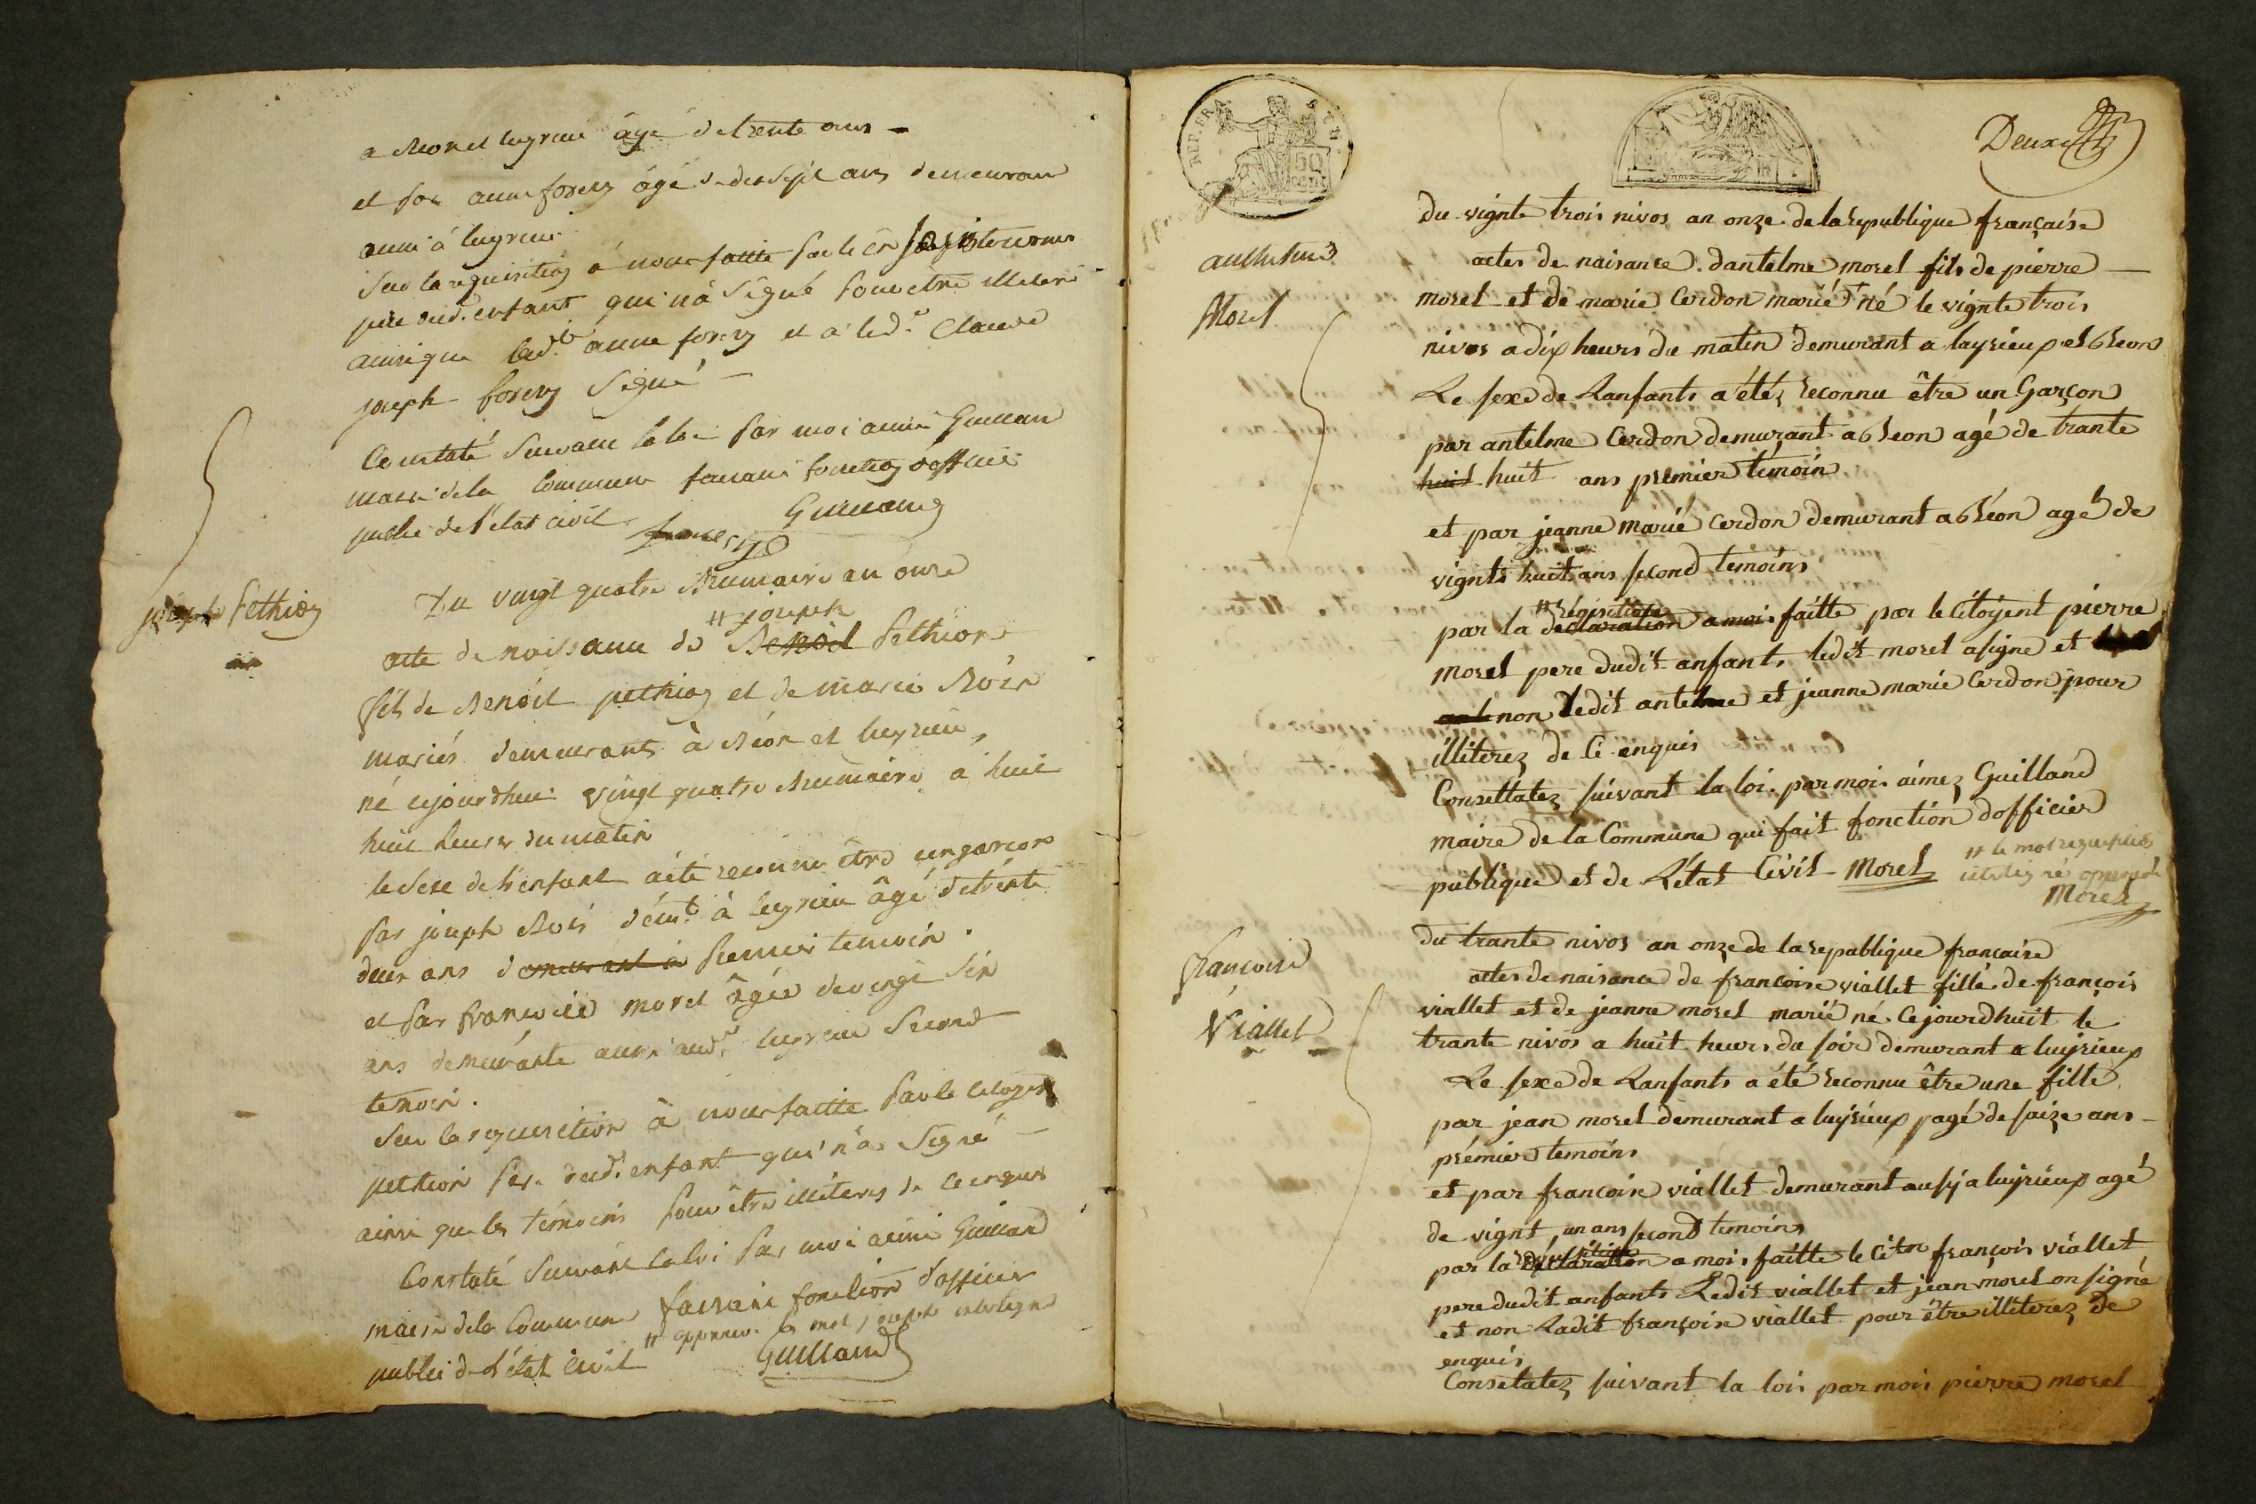 a Meon et lugrieu âgé de trente ans
et par anne forery âgé de dix sept ans demeurant
aussi à lugrieu
Sur la requisition à nous faitte par le cn
père dud. enfant qui n'a signé pour être illiteré
ainsi que lad.te anne forery et a led.t Claude
joseph forery signé
Constaté suivant la loi par moi aimé Guilland
maire de la Commune faisant fonction d'officier
public de l'état civil
Guilland
joseph Pethion
Du vingt quatre Brumaire an onze
# joseph
acte de naissance de Benoit Pethion
fils de Benoit pethion et de marie Roux
mariés demeurants à Béon et lugrieu,
né cejourdhui vingt quatre Brumaire a huit
huit heures du matin
le sexe de l'enfant a été reconnu être un garçon
par joseph Roux dem.t à lugrieu âgé de trente
deux ans demeurant à Premier temoin.
et par francoise morel âgée de vingt six
ans demeurante aussi aud.t lugrieu Second
temoin.
Sur la requisition à nous faitte par le citoyen
pethion père dud. enfant qui n'a signé
ainsi que les témoins pour être illiterez de ce enquis
Constaté suivant la loi par moi aimé Guilland
maire de la Commune faisant fonction d'officier
public de l'état Civil # approuvé le mot joseph interligne
Guilland
REP. FRA
50
CENT
Deux
anthelme
Morel
du vignte trois nivos an onze de la republique française
actes de naisance dantelme morel fils de pierre
morel et de marie Cerdon marié né le vignte trois
nivos a dix heurs du matin demurant a luyrieux et bleon
Le sexe de Lanfants a étéz reconnu être un Garçon
par antelme Cerdon demurant a bleon agé de trante
huit huit ans premier témoin
et par jeanne marié cerdon demurant a bléon agé de
vignts huit ans second temoins
# réquisition
par la declaration a moi faitte par le Citoyent pierre
morel pere dudit anfant, ledit morel a signe et
non ledit antelme et jeanne marie Cerdon pour
illiterez de Ce enquis
Consettatez suivant la loi par moi aimez Guilland
maire de la Commune qui fait fonction dofficier
publique et de Létat Civil Morel
# le mot requisition
interligné approuvé
Morel
françoise
Viallet
du trante nivos an onze de la republique francaise
actes de naisance de francoise viallet fille de françois
viallet et de jeanne morel marié né Cejourdhuit le
trante nivos a huit heurs du soir demurant a luyrieux
Le sexe de Lanfants a été reconnu être une fille
par jean morel demurant a luyrieux agé de saize ans
prémier temoins
et par francoise viallet demurant aussy a luyrieux agé
de vignt un ans second temoins
requisition
par la declaration a moi faitte le Citen françois viallet
pere dudit anfants Ledit viallet et jean morel on signé
et non Ladit françoise viallet pour être illiterez de
enquis
Consetatez suivant la loi par moi pierre morel